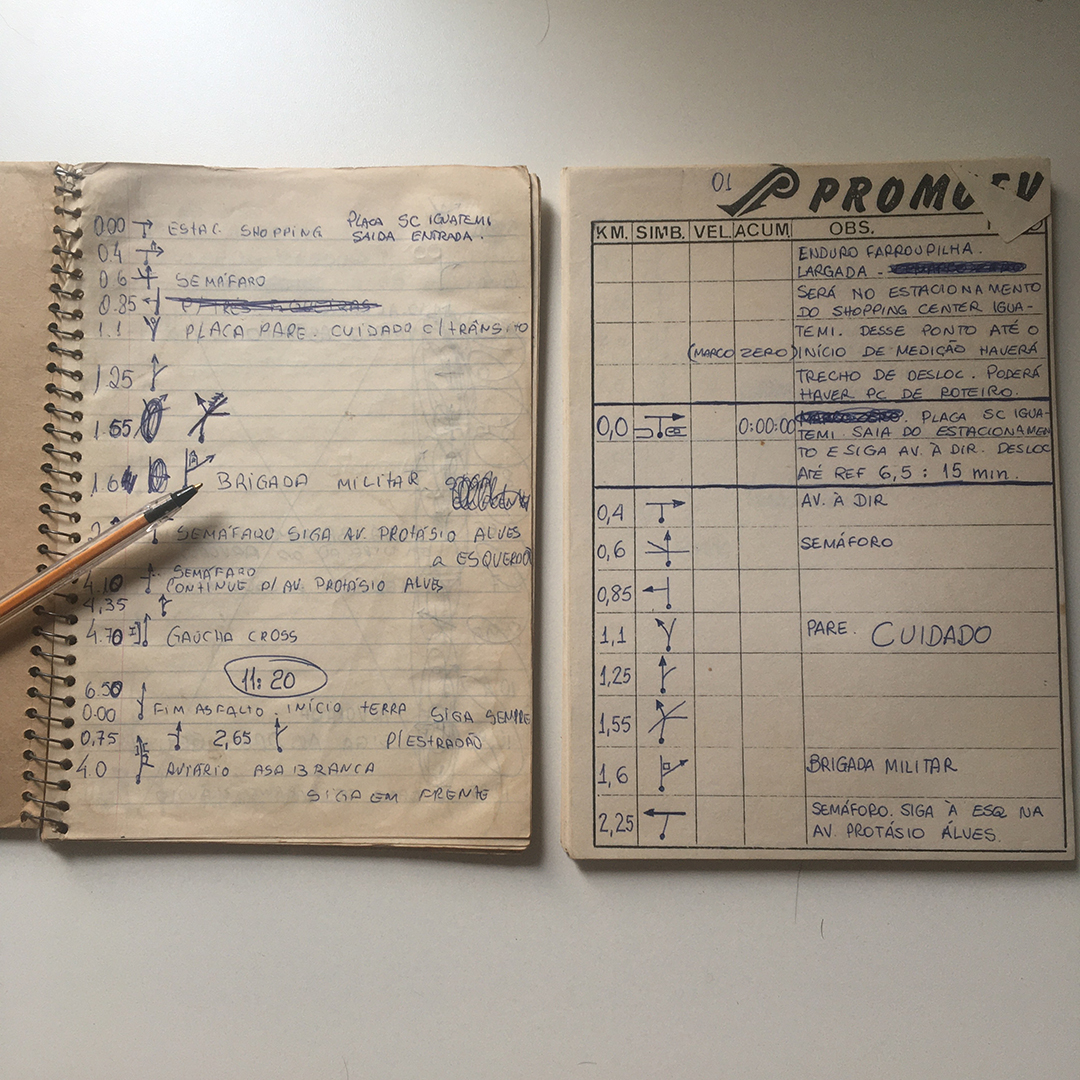 0.00 ESTAC. SHOPPING PLACA SC IGUATEMI
SAIDA ENTRADA.
0.4
0 6 SEMÁFARO
0.85
1.1 PLACA PARE. CUIDADO C/TRÂNSITO
1.25
1.55
1.6 BRIGADA MILITAR
SEMÁFARO SIGA AV. PROTÁSIO ALVES
a ESQUERDA
4.10 SEMÁFARO
CONTINUE P/ AV. PROTÁSIO ALVES
4,35
4.70 GAUCHA CROSS
11:20
6.50
0.00 FIM ASFALTO. INÍCIO TERRA SIGA SEMPRE
0,75 2,65 P/ESTRADÃO
4.0 AVIÁRIO ASA BRANCA
SIGA EM FRENTE
01
KM. SIMB. VEL ACUM OBS.
ENDURO FARROUPILHA.
LARGADA -
SERÁ NO ESTACIONAMENTO
DO SHOPPING CENTER IGUA-
TEMI. DESSE PONTO ATÉ O
(MARCO ZERO) INÍCIO DE MEDIÇÃO HAVERÁ
TRECHO DE DESLOC. PODERÁ
HAVER PC DE ROTEIRO.
0,0 0:00:00 PLACA SC IGUA-
TEMI. SAIA DO ESTACIONAMEN
TO E SIGA AV. À DIR. DESLOC
ATÉ REF 6,5 : 15 min.
0,4 AV. À DIR
0,6 SEMÁFORO
0,85
1,1 PARE. CUIDADO
1,25
1,55
1,6 BRIGADA MILITAR
2,25 SEMÁFORO. SIGA À ESQ NA
AV. PROTÁSIO ÁLVES.